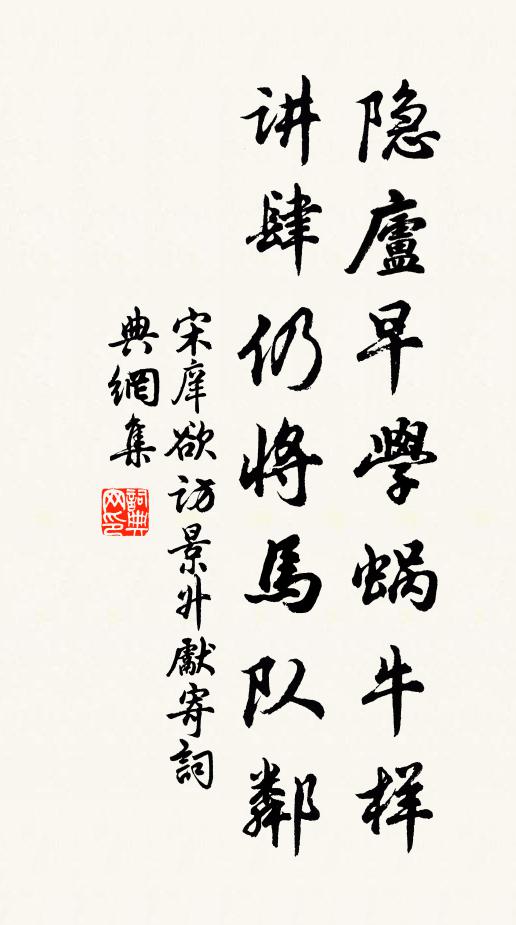 隐廬早學蜗牛样
讲肆仍将馬队鄰
宋庠欲访景升獻寄詞
典網集
詞典网印